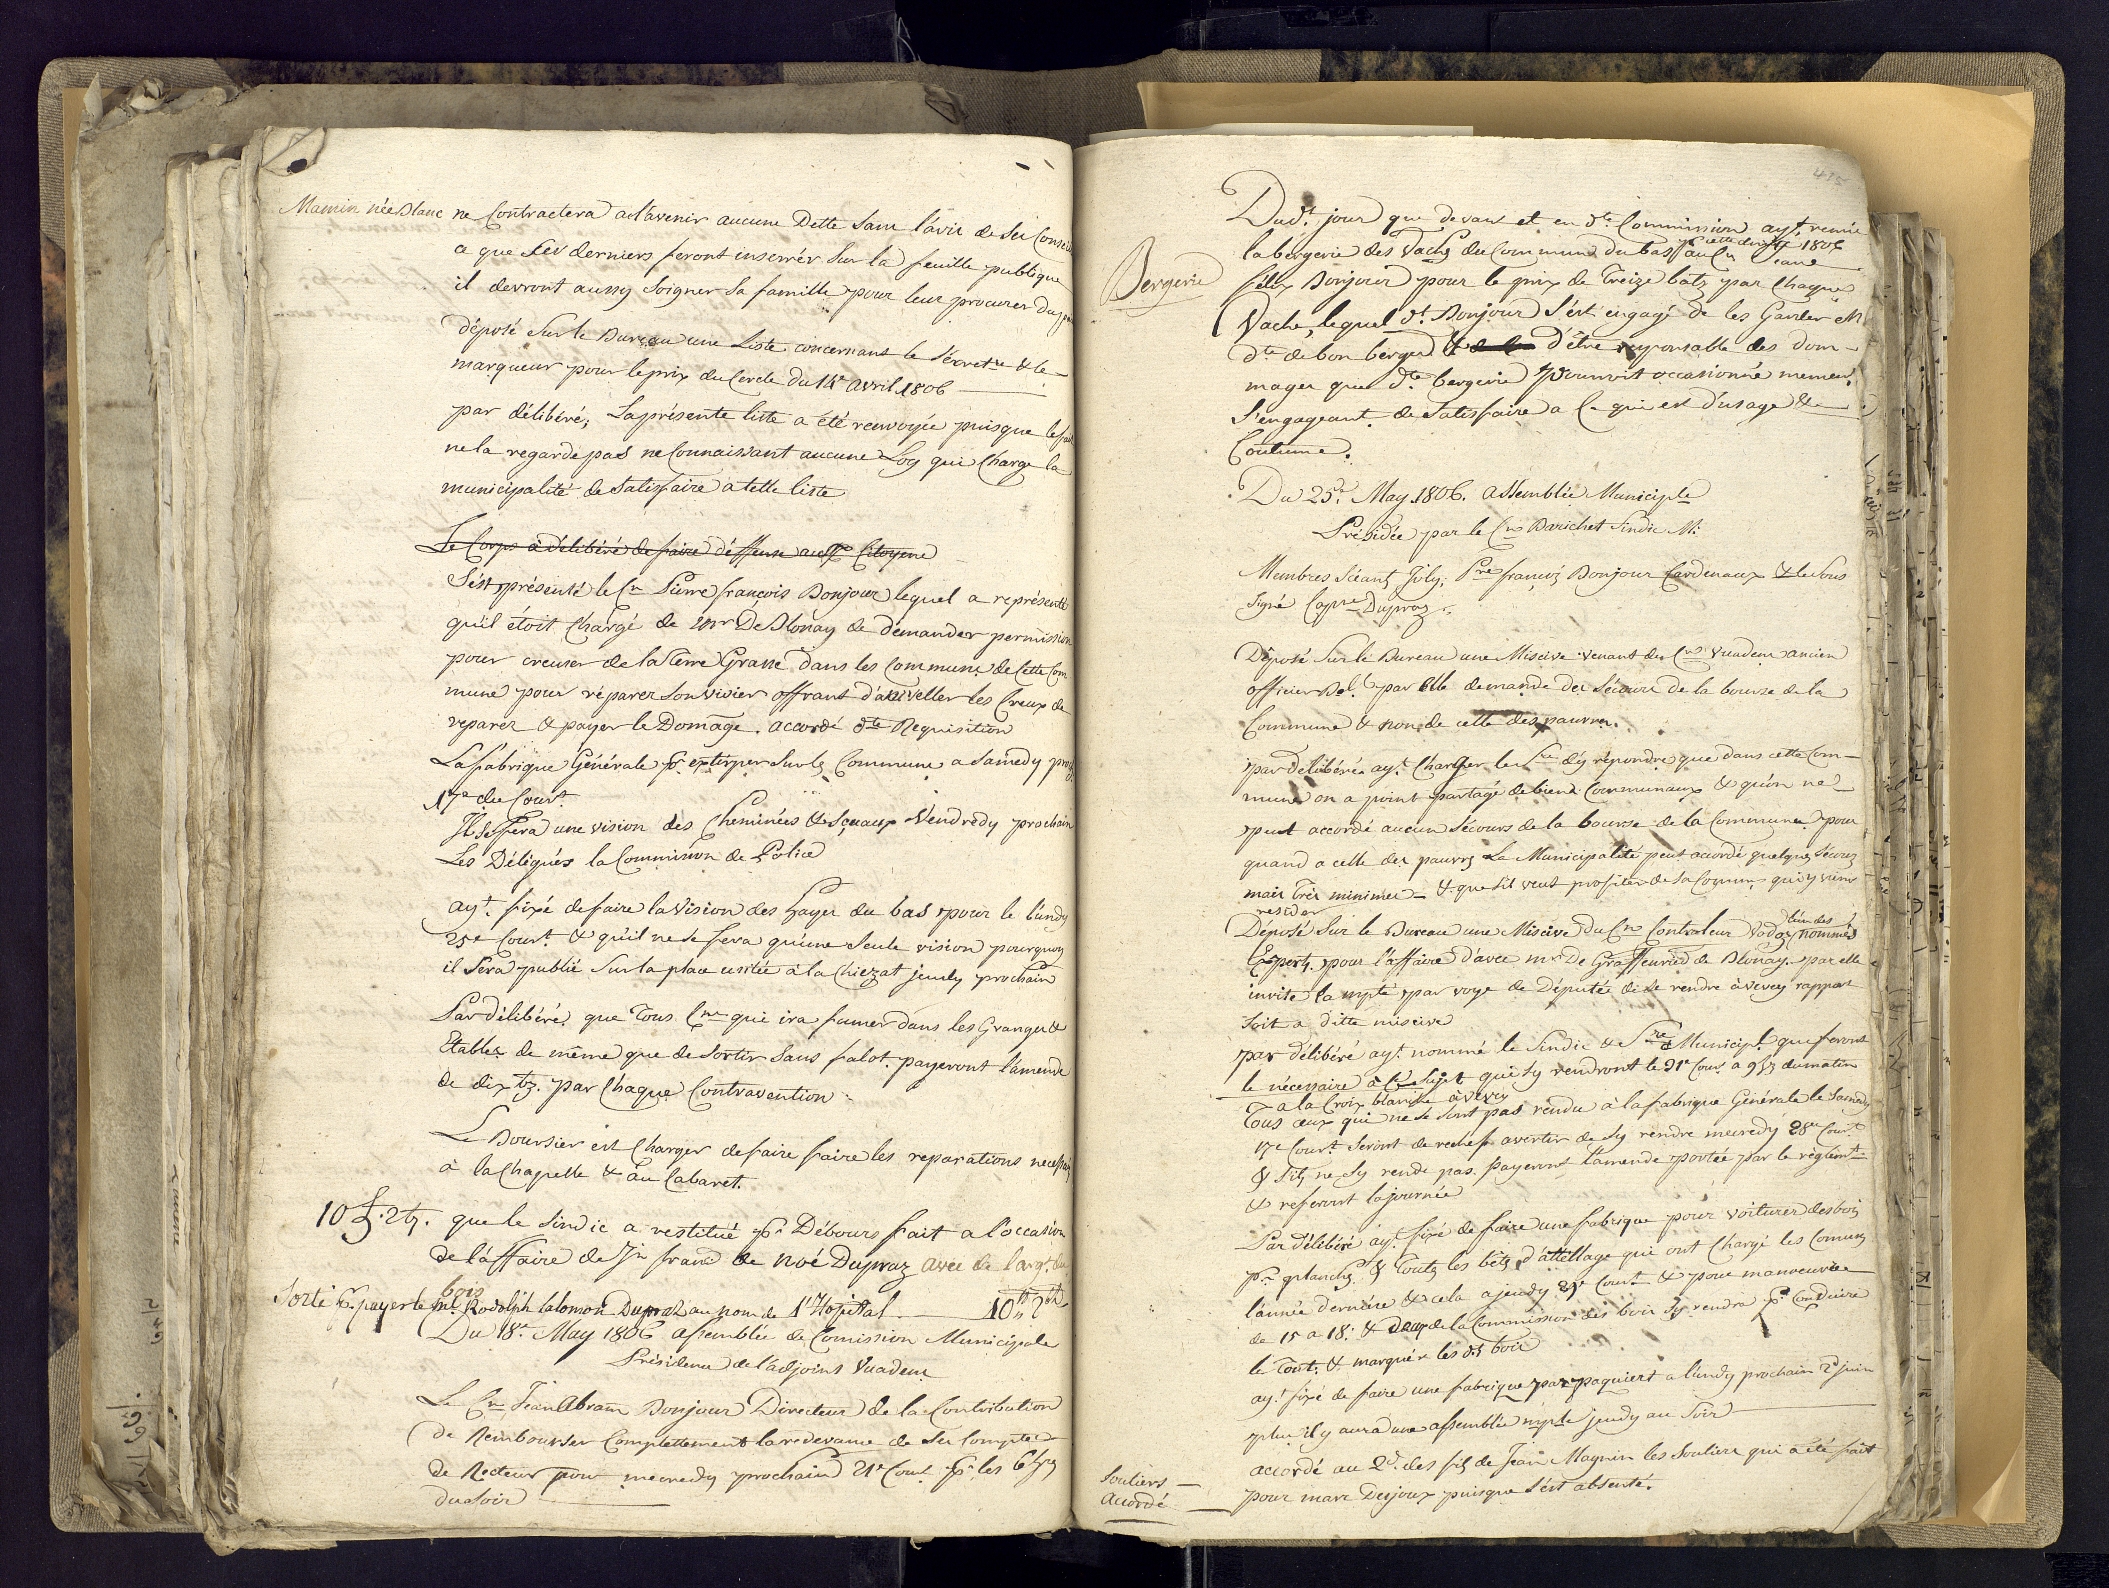 Mamin née Blanc ne Contractera al'avenir aucune Dette sans l'avis de ses Conseils
a que ses derniers feront inserrér sur la feuille publique
il devront aussy soigner sa famille pour leur procurer du
déposé sur le Bureau une Liste concernant le sécretre & le
marqueur pour le prix du Cercle du 14e avril 1806
par délibéré; La présente liste a été renvoyée puisque le fait
ne la regarde pas ne Connaissant aucune Loy qui Charge la
municipalité de satisfaire a telle liste
Le Corps a délibéré de faire déffense aux Citoyens
S'est présenté le Cn Pierre françois Bonjour lequel a représenté
qu'il étoit Chargé de Mr DeBlonay de demander permission
pour creuser de la Terre Grasse dans les Communs de Cette Com
mune pour réparer son vivier offrant d'aniveller les Creux de
reparér & payer le Domage. accordé dte Requisition
La fabrique Générale pr extirper sur les Communs a samedy proch
17e du Court
Il se fera une vision des Cheminées & Sçeaux Vendredy prochain
Les Délégués la Commission de Police
ayt. fixé de faire la Vision des hayes du bas pour le lundy
25e Court. & qu'il ne se fera qu'une seule vision pourquoy
il sera publié sur la place usitée à la Chiezat jeudy prochain
Par délibéré que Tous Cns qui ira fumer dans les Granges &
Etables de même que de sortir sans falot payeront l'amende
de dix bz. par Chaque Contravention
Le Boursier est Charger de faire faire les reparations necessaires
à la Chapelle & au Cabaret.
10 £. 2 bz. que le Sindic a restitué pr Débours fait a l'occasion
de l'affaire de Jn franc de Noé Dupraz avec de l'argt. du
bois
Sorti pr payer le mt. Rodolph Salomon Dupraz au nom de l'Hopital 10 tt 2
Du 18e May 1806 assemblée de Comission Municipale
Présidence de l'adjoint Vuadens
Le Cn Jean Abram Bonjour Directeur de la Contribution
de Rembourser Complettement la redevance de ses Comptes
de Recteur pour mecredy prochain 21e Court pr les 6 hrs
du soir
415
Dudt. jour que devant et en dte Commission ayt. remis
la bergerie des Vaches des Communs du bas pr cette année 1806
Bergerie
au Cn Jean
felix Bonjour pour le prix de Treize batz par Chaque
Vache, lequel dt. Bonjour s'est engagé de les Garder en
dte de bon berger & d'être responsable des dom-
mages que dte bergerie pourroit occasionné
s'engageant de satisfaire a Ce qui est d'usage &
Coutume.
Du 25e May 1806. assemblée Municiple
Présidée par le Cn Barichet Sindic M:
Membres Séants Joly; Pre françoi Bonjour Cardenaux & le sous
signé Dupraz
Déposé sur le Bureau une Miscive venant du Cn Vuadens ancien
officier par Elle demande des sécours de la bourse de la
Commune & non de celle des pauvres.
par délibéré ayt. Charger le Sre d'y répondre que dans cette Com-
mune on a point partagé de biens Communaux & qu'on ne
peut accordé aucun sécours de la bourse de la Commune pour
quand a celle des pauvres La Municipalité peut accordé quelques sécours
mais très minimes & que s'il veut profiter de sa Commune qu'il y viens
resider
Déposé sur le Bureau une Miscive du Cn Controleur Dodoz l'un des nommés
Experts pour l'affaire d'avec mr de Graffenried de Blonay. par elle
invite la mpté par voye de Députés de se rendre à Vevey rapport
soit a ditte miscive
par délibéré ayt. nommé le Sindic & Sre Municipt. que feront
le nécessaire à ce sujet qui sy rendront le 31e Court a 9 hrs du matin
a la Croix blanche à Vevey
Tous ceux qui ne se sont pas rendu à la fabrique Générale le Samedy
17e Court. seront de rechef avertir de sy rendre mecredy 28e Court
& s'ils ne sy rende pas payeront l'amende portée par le réglemt
& referont la journée
Par délibéré ayt. fixé de faire une fabrique pour voiturer des bois
pr planches & Toutes les bêtes d'attellage qui ont Chargé les Comuns
l'année dernière & cela a jeudy 29e Court & pour manoeuvrée
de 15 a 18. & deux de la Commission des bois sy rendra pr Conduire
le Tout. & marquér les dts bois
ayt. fixé de faire une fabrique par paquiers a lundy prochain 2d juin
plus il y aura une assemblée mple jeudy au soir
Souliers
accordé
accordé au 2d. des fils de Jean Magnin les Souliers qui a été fait
pour marc Desjoux puisque s'est absenté.